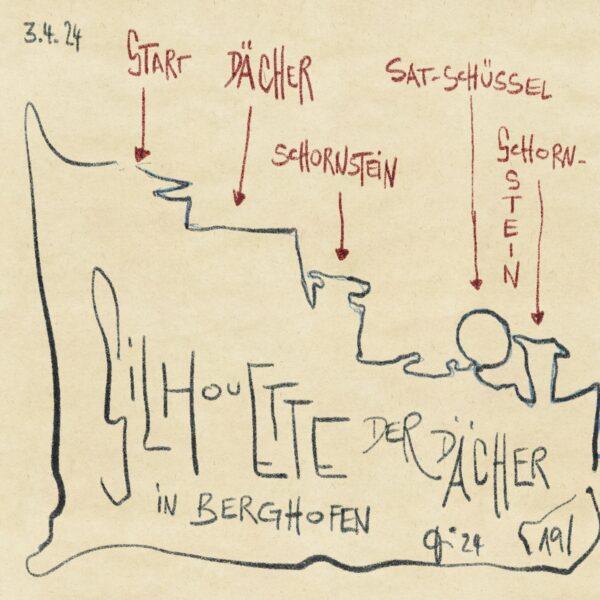 3.4.24
START
DÄCHER
SAT-SCHÜSSEL
SCHORNSTEIN
SCHORN-
STEIN
SILHOUETTE
DER DÄCHER
IN BERGHOFEN
24
19